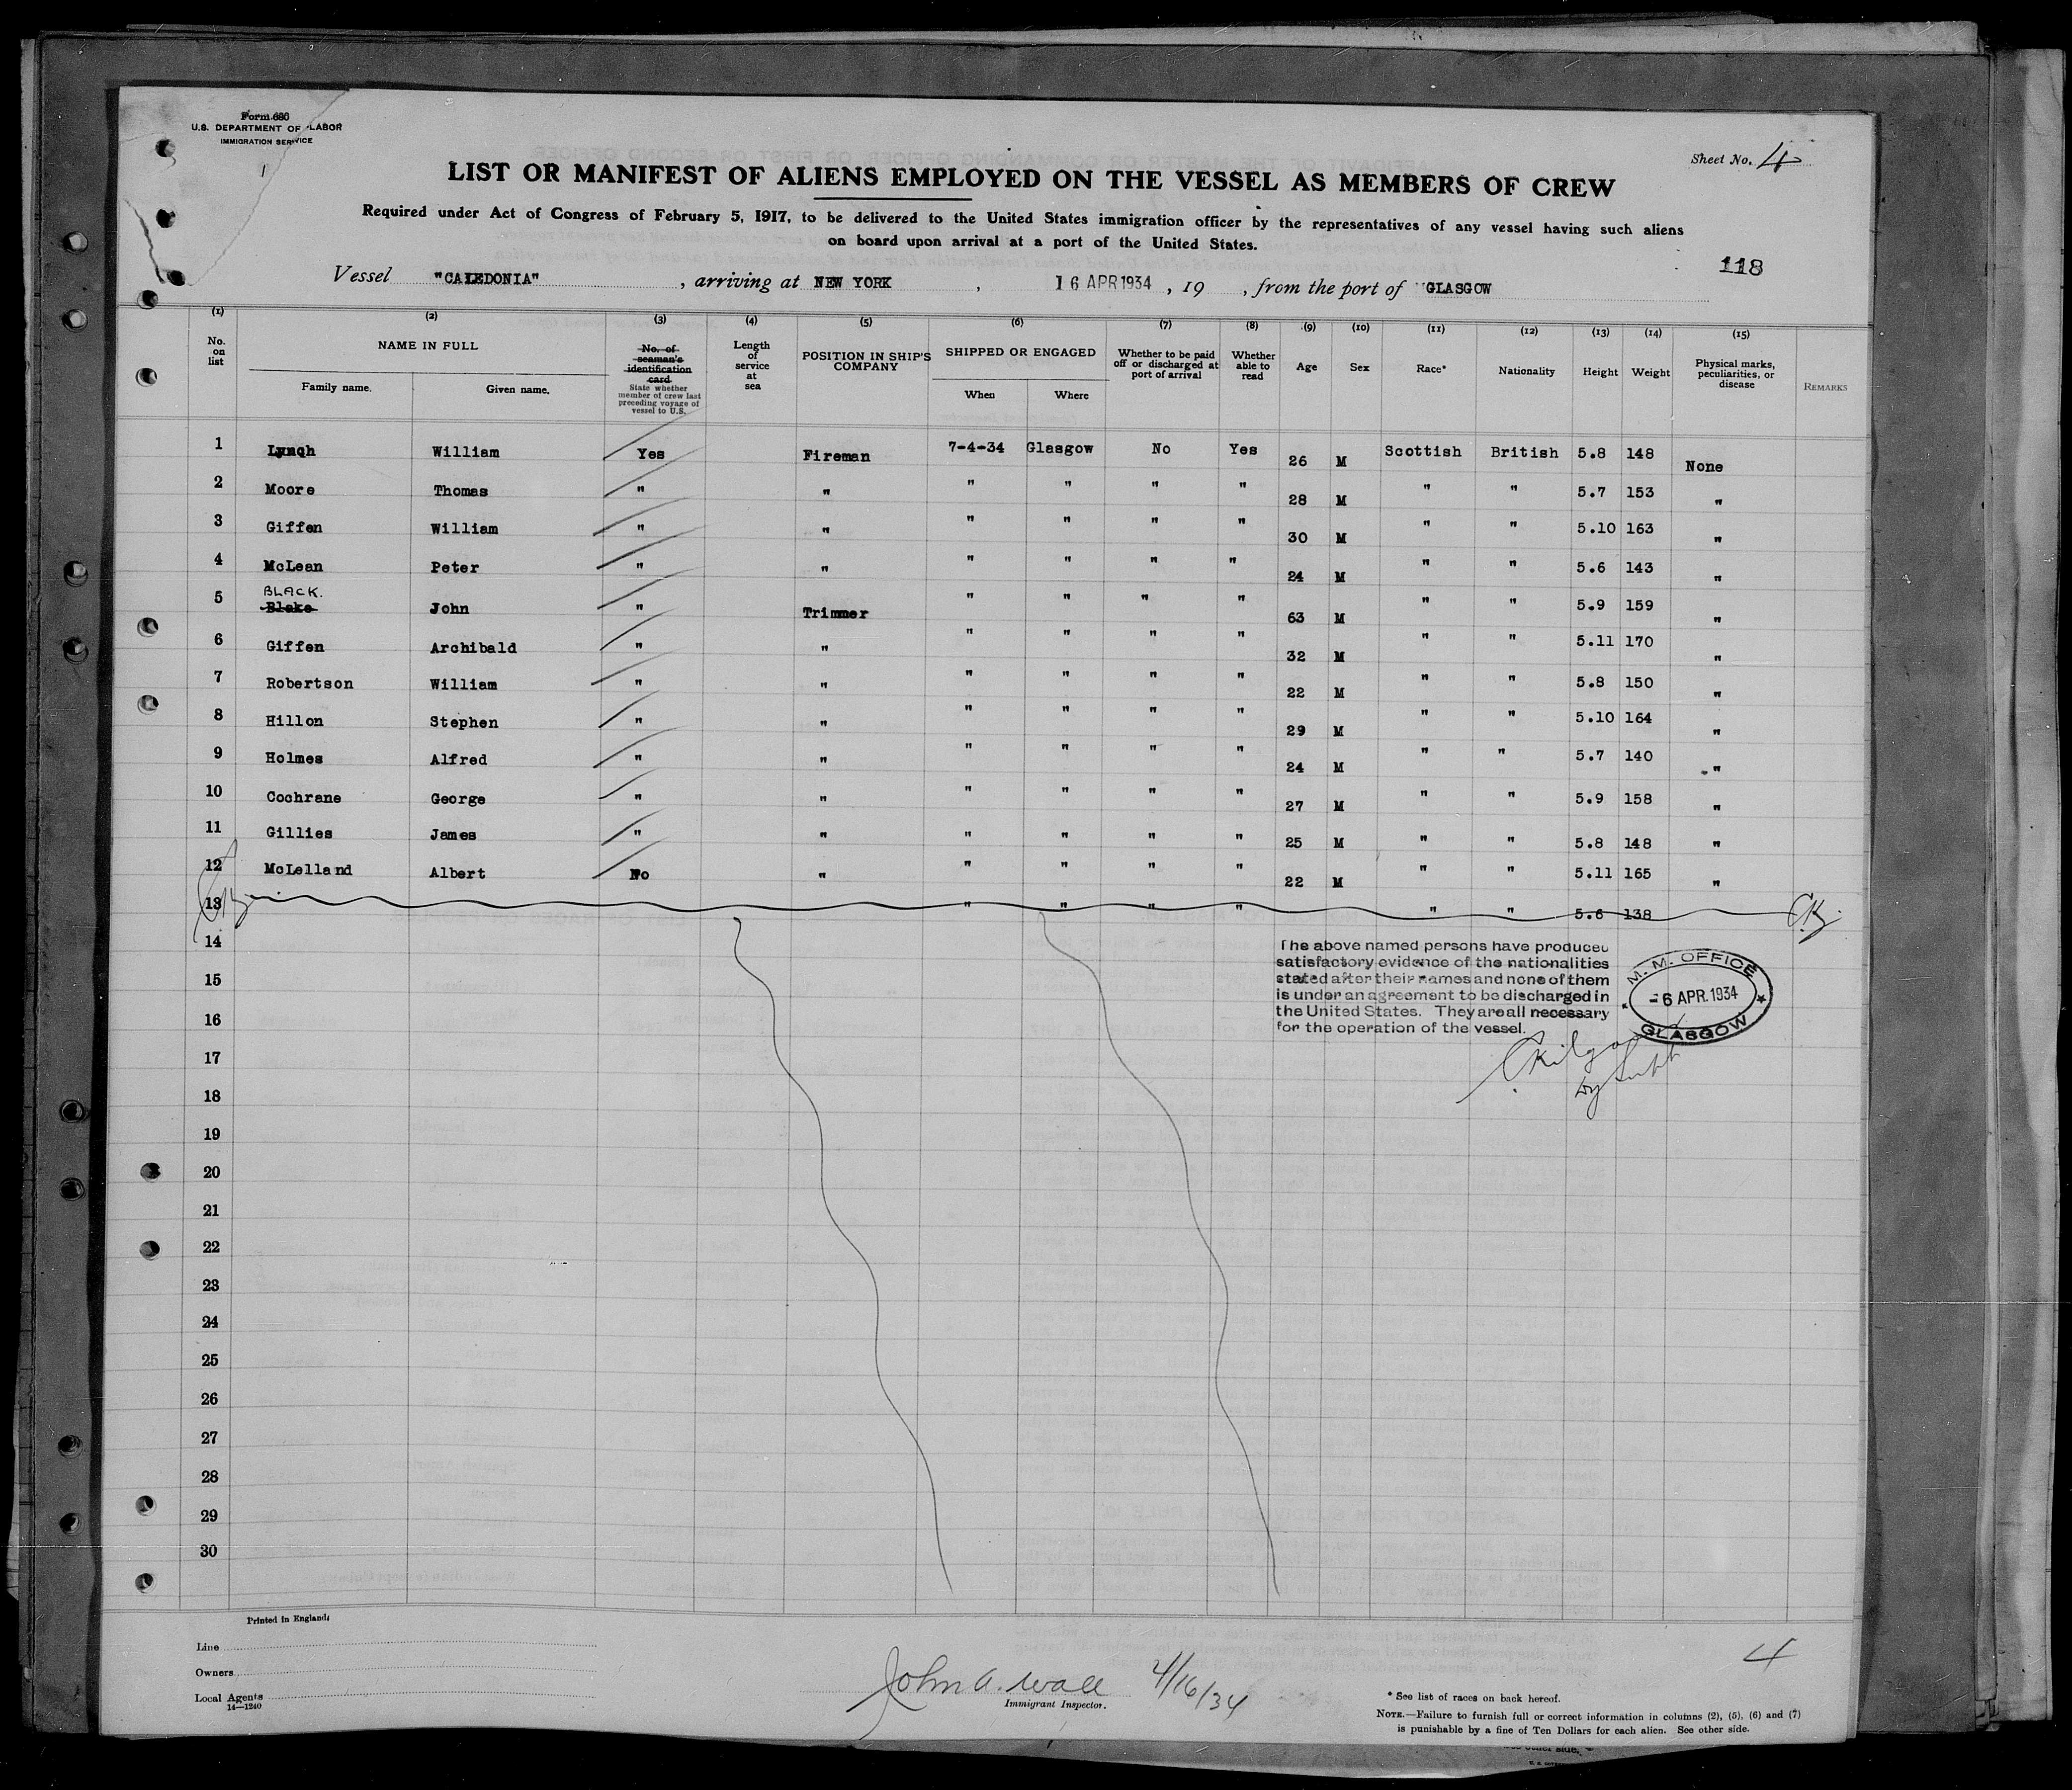 Form 680
U.S. DEPARTMENT OF LABOR
IMMIGRATION SERVICE
Sheet No. 4
LIST OR MANIFEST OF ALIENS EMPLOYED ON THE VESSEL AS MEMBERS OF CREW
Required under Act of Congress of February 5, 1917, to be delivered to the United States immigration officer by the representatives of any vessel having such aliens
on board upon arrival at a port of the United States.
118
Vessel "CALEDONIA", arriving at NEW YORK, 16 APR 1934, 19 , from the port of GLASGOW
(1) (2) (3) (4) (5) (6) (7) (8) (9) (10) (11) (12) (13) (14) (15)
No. on list
NAME IN FULL
Family name. Given name.
No. of seaman's identification card
State whether member of crew last preceding voyage of vessel to U.S.
Length of service at sea
POSITION IN SHIP'S COMPANY
SHIPPED OR ENGAGED
When Where
Whether to be paid off or discharged at port of arrival
Whether able to read
Age
Sex
Race*
Nationality
Height
Weight
Physical marks, peculiarities, or disease
REMARKS
1 Lynch William Yes Fireman 7-4-34 Glasgow No Yes 26 M Scottish British 5.8 148 None
2 Moore Thomas " " " " " " 28 M " " 5.7 153 "
3 Giffen William " " " " " " 30 M " " 5.10 163 "
4 McLean Peter " " " " " " 24 M " " 5.6 143 "
BLACK.
5 Blake John " Trimmer " " " " 63 M " " 5.9 159 "
6 Giffen Archibald " " " " " " 32 M " " 5.11 170 "
7 Robertson William " " " " " " 22 M " " 5.8 150 "
8 Hillon Stephen " " " " " " 29 M " " 5.10 164 "
9 Holmes Alfred " " " " " " 24 M " " 5.7 140 "
10 Cochrane George " " " " " " 27 M " " 5.9 158 "
11 Gillies James " " " " " " 25 M " " 5.8 148 "
12 McLelland Albert No " " " " " 22 M " " 5.11 165 "
13 " " " " " " 5.6 138
14
The above named persons have produced
satisfactory evidence of the nationalities
stated after their names and none of them
is under an agreement to be discharged in
the United States. They are all necessary
for the operation of the vessel.
M. M. OFFICE
-6 APR. 1934
GLASGOW
15
16
17
18
19
20
21
22
23
24
25
26
27
28
29
30
Printed in England
Line
Owners
Local Agents
14—1240
John A. Wall 4/16/34
Immigrant Inspector.
4
* See list of races on back hereof.
NOTE.—Failure to furnish full or correct information in columns (2), (5), (6) and (7)
is punishable by a fine of Ten Dollars for each alien. See other side.